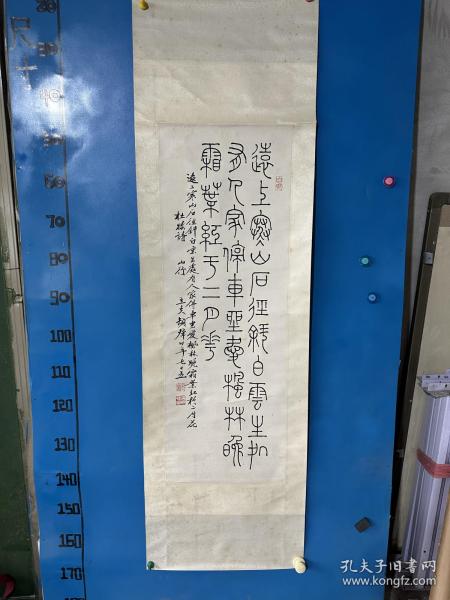 遠上寒山石徑斜白雲生処
有人家停車坐愛楓林晚
霜葉紅于二月華
遠上寒山石徑斜白雲生處有人家停車坐愛楓林晚霜葉紅於二月花
杜牧詩 山行
尺寸
30
40
50
60
70
80
90
100
110
120
130
140
150
160
170
孔夫子旧书网
www.kongfz.com